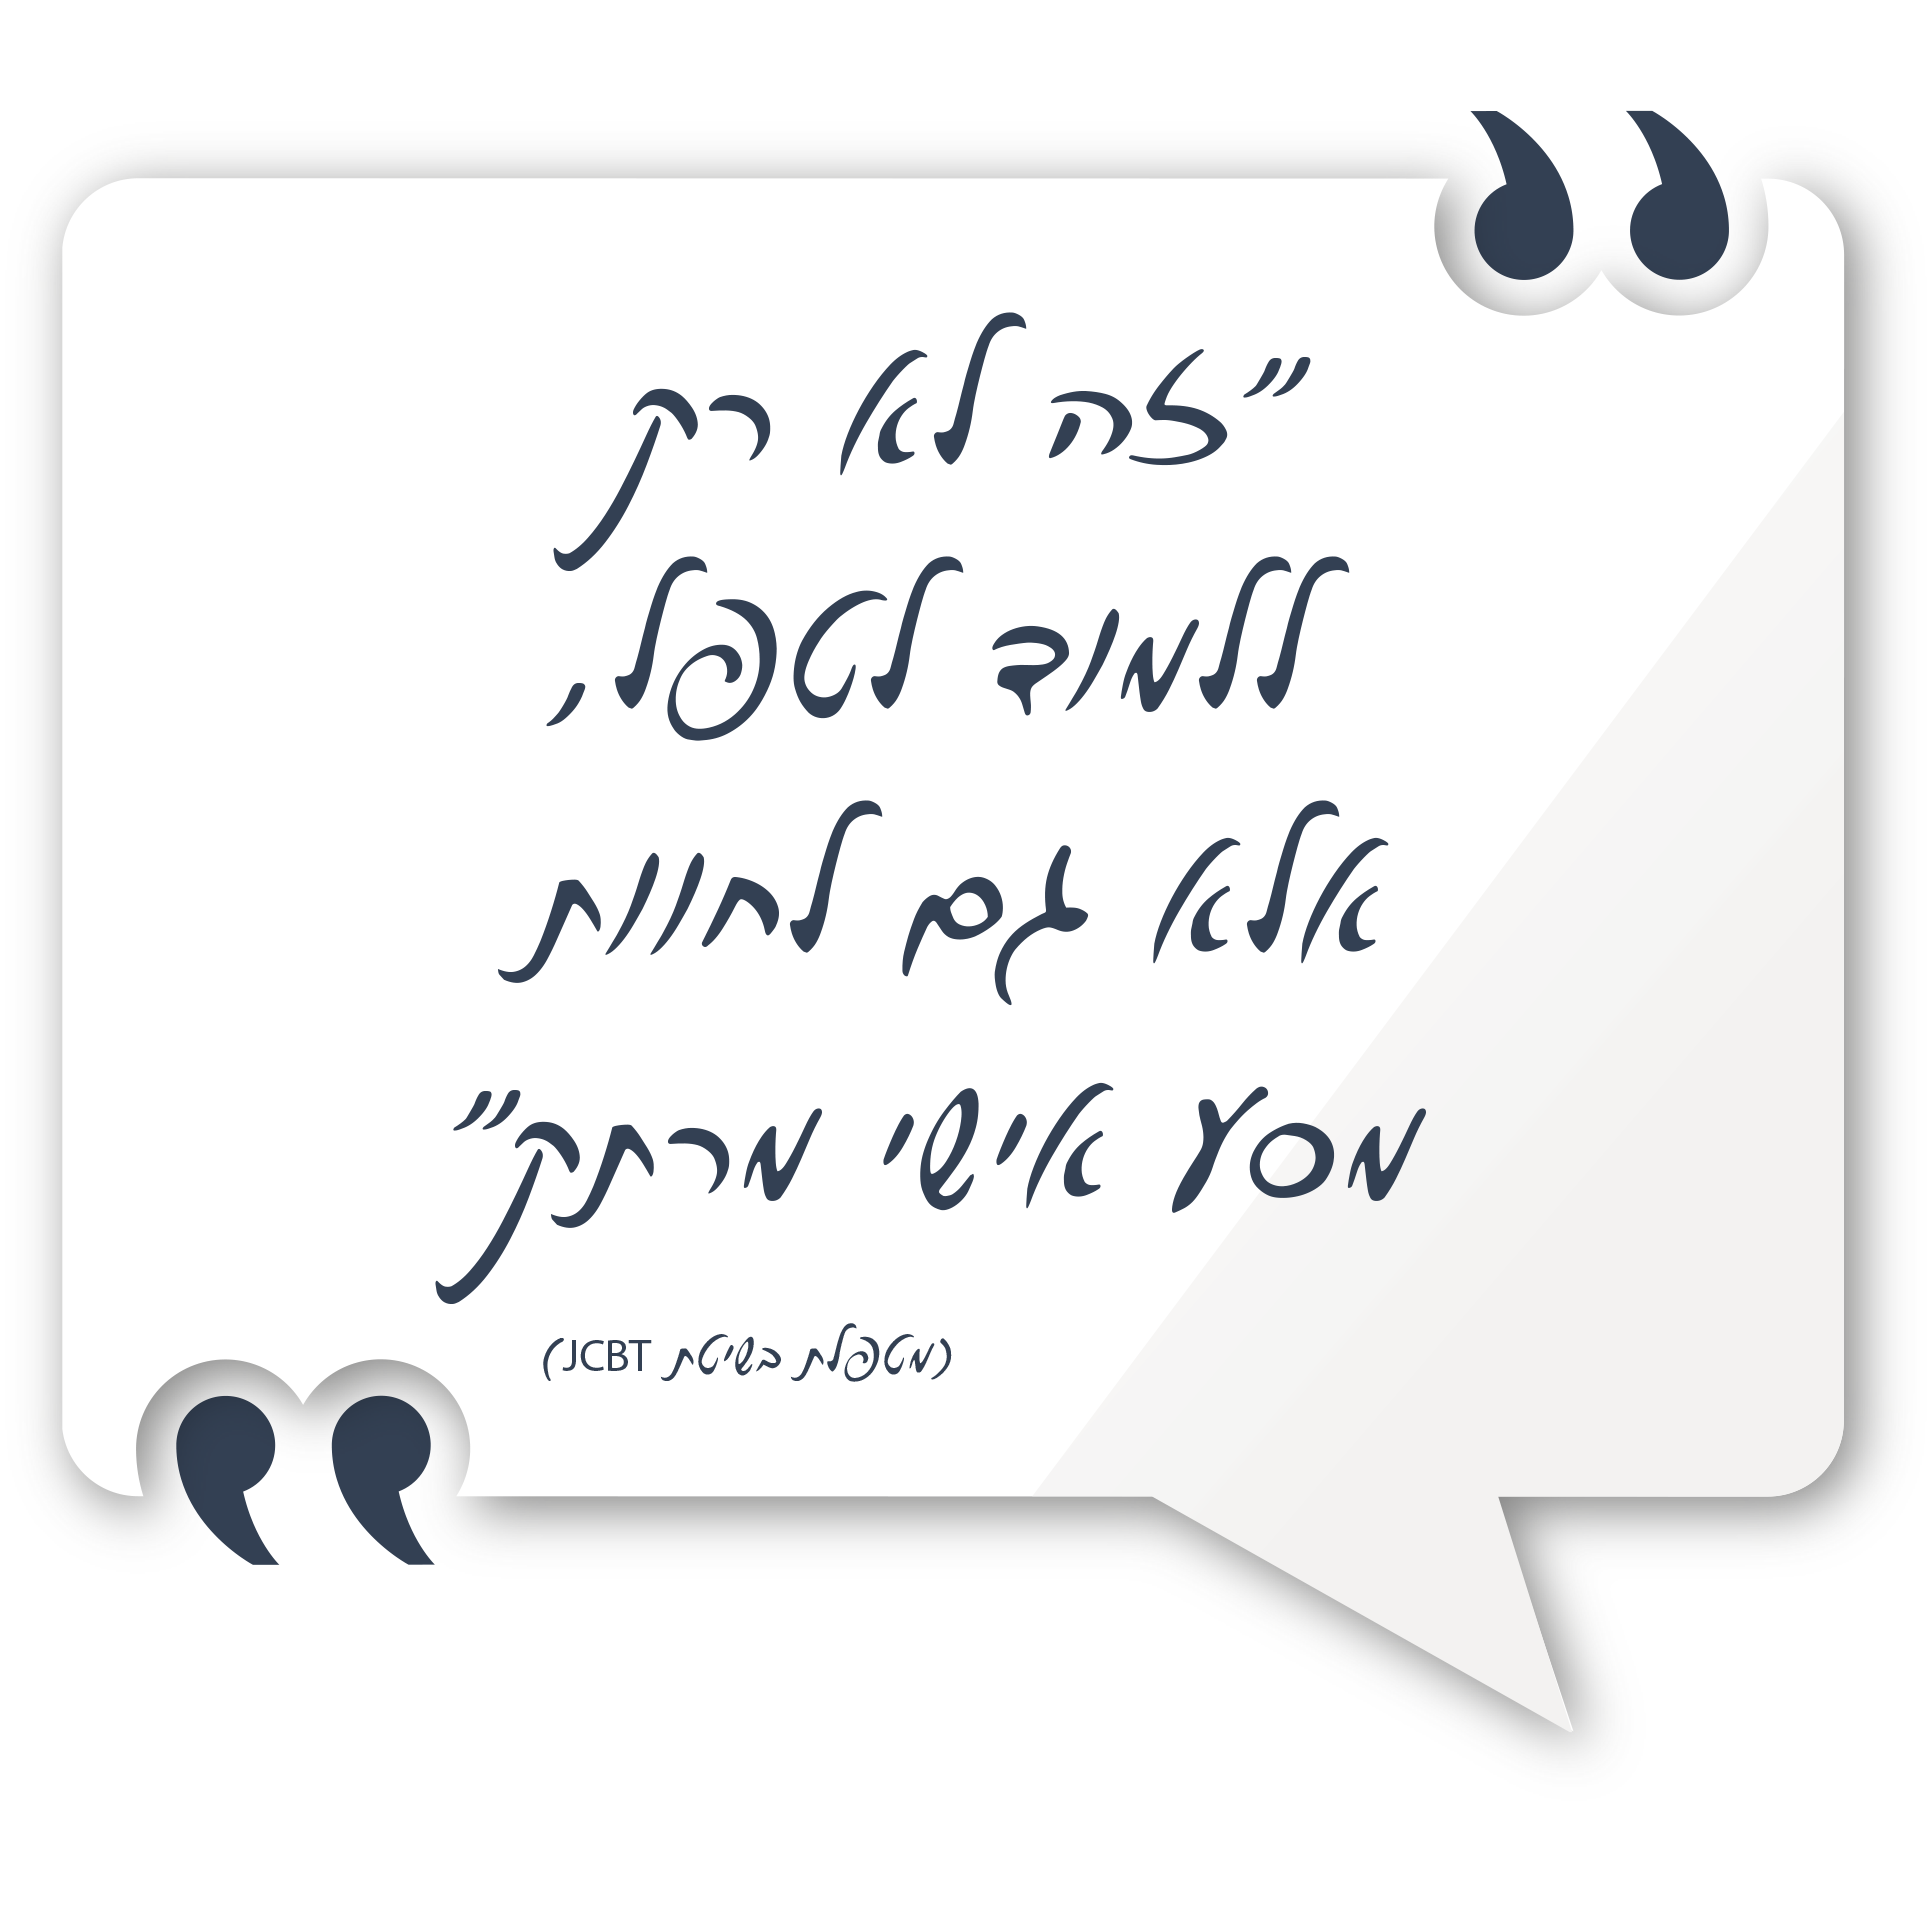 "זה לא רק
ללמוד לטפל,
אלא גם לחוות
מסע אישי מרתק"
(מטפלת בשיטת JCBT)